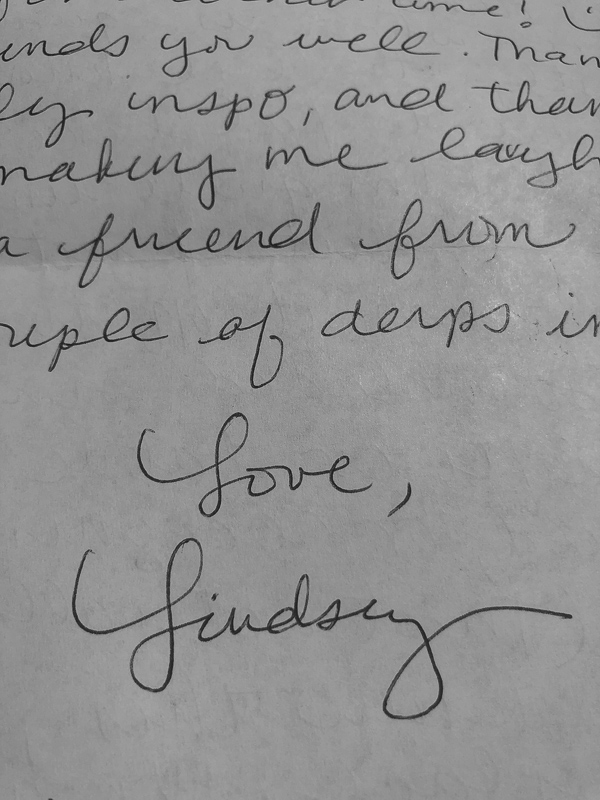 time!
ends you well. Than
ly inspo, and than
making me laugh
a friend from
uple of derps in
Love,
Lindsey